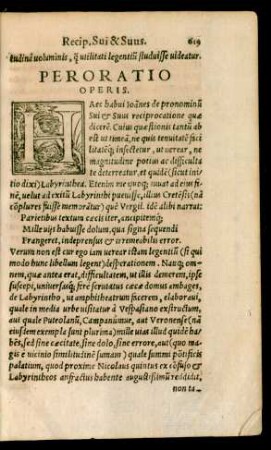 Recip. Sui & Suus. 619
tudinẽ uoluminis, q̃ utilitati legentiũ studuisse uideatur.
PERORATIO
OPERIS.
HAec habui Ioãnes de pronominũ
Sui & Suus reciprocatione quæ
dicerẽ. Cuius quæstionis tantũ ab
est ut timeã, ne quis tenuitatẽ faci
litatẽq; insectetur, ut uerear, ne
magnitudine potius ac difficulta
te deterreatur, et quidẽ (sicut ini
tio dixi) Labyrinthea. Etenim me quoq; iuuat ad eius fi
nẽ, uelut ad exitũ Labyrinthi peruẽisse, illius Cretẽsis (nã
cõplures fuisse memoratur) quẽ Vergil. idẽ alibi narrat:
Parietibus textum cæcis iter, ancipitemq;
Mille uijs habuisse dolum, qua signa sequendi
Frangeret, indeprensus & irremeabilis error.
Verum non est cur ego iam uerear istam legenti (si qui
modo hunc libellum legent) asperationem. Nanq; om-
nem, quæ antea erat, difficultatem, ut illis demerem, ipse
suscepi, uniuersasq; fere serutatus cæcæ domus ambages,
de Labyrintho, ut amphitheatrum facerem, elaboraui,
quale in media urbe uisitatur à Vespasiano exstructum,
aut quale Puteolanũ, Campanumue, aut Veronense (nã
eiusdem exempla sunt plurima) mille uias illud quidẽ ha
bẽs, sed sine cæcitate, sine dolo, sine errore, aut (quo ma-
gis e uicinio similitudinẽ sumam) quale summi põtificis
palatium, quod proxime Nicolaus quintus ex cõfuso &
Labyrintheos anfractus habente augustissimũ reddidit,
non ta-